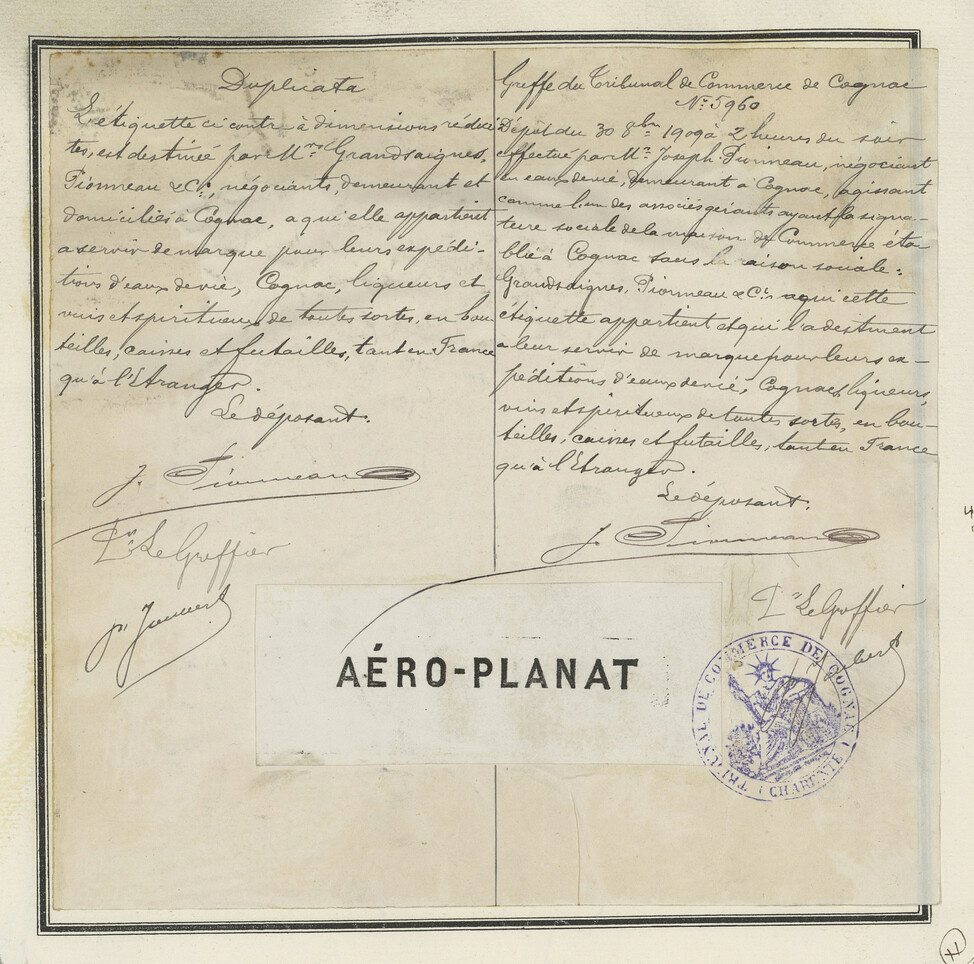 Duplicata
L'étiquette ci contre à dimensions rédui-
tes, est destinée par Mrs Grandsaignes,
Pionneau & Cie, négociants, demeurant et
domiciliés à Cognac, a qui elle appartient
a servir de marque pour leurs expédi-
tions d'eaux de vie, Cognac, liqueurs et
vins et spiritueux de toutes sortes, en bou-
teilles, caisses et futailles, tant en France
qu'à l'Etranger.
Le déposant.
J. Pionneau
Pr Le Greffier
Greffe du Tribunal de Commerce de Cognac
No 5960
Dépôt du 30 8bre 1909 à 2 heures du soir
effectué par Mr Joseph Pionneau, négociant
en eaux de vie, demeurant à Cognac, agissant
comme l'un des associés gérants ayant la signa-
ture sociale de la maison de Commerce éta-
blie à Cognac sous la raison sociale:
Grandsaignes, Pionneau & Cie a qui cette
étiquette appartient et qui l'a destinent
a leur servir de marque pour leurs ex-
péditions d'eaux de vie, Cognac, liqueurs,
vins et spiritueux de toutes sortes, en bou-
teilles, caisses et futailles, tant en France
qu'à l'Etranger.
Le déposant.
J. Pionneau
Pr Le Greffier
AÉRO-PLANAT
TRIBUNAL DE COMMERCE DE COGNAC (CHARENTE)